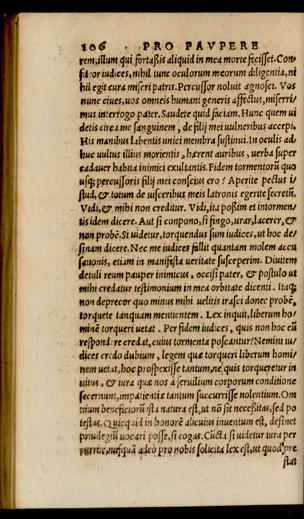 106 PRO PAVPERE
rem, illum qui fortaßis aliquid in mea morte fecisset. Con-
sitor iudices, nihil tunc oculorum meorum diligentia, ni
hil egit cura miseri patris. Percussor noluit agnosci. Vos
nunc ciues, uos omneis humani generis affectus, miserri-
mus interrogo pater. Suadete quid faciam. Hunc quem ui
detis circa me sanguinem, de filij mei uulneribus accepi.
His manibus labentis unici membra sustinui. In oculis ad-
huc uultus illius morientis, hærent auribus, uerba super
cadauer habita inimici exultantis. Fidem tormentorũ quo
usq; percussoris filij mei conscius ero? Aperite pectus i-
stud, & totum de uisceribus meis latronis egerite secretũ.
Vidi, & mihi non creditur. Vidi, ita poßim et in tormen-
tis idem dicere. Aut si conpono, si fingo, urar, lacerer, &
non probē. Si uidetur, torquendus sum iudices, ut hoc de-
sinam dicere. Nec me iudices fallit quantam molem accu
sationis, etiam in manifesta ueritate susceperim. Diuitem
detuli reum pauper inimicus, occisi pater, & postulo ut
mihi credatur testimonium in mea orbitate dicenti. Itaq;
non deprecor quo minus mihi uelitis irasci donec probē,
torquete tanquam mentientem. Lex inquit, liberum ho-
minē torqueri uetat. Per fidem iudices, quis non hoc eũ
respondere credat, cuius tormenta poscantur? Nemini iu-
dices credo dubium, legem quæ torqueri liberum homi-
nem uetat, hoc prospexisse tantum, ne quis torqueretur in
uitus, & iura quæ nos a seruilium corporum conditione
secernunt, impatientiæ tantum succurrisse nolentium. Om
nium beneficiorũ ista natura est, ut nō sit necessitas, sed po
testas. Quicquid in honorē alicuius inuentum est, desinet
priuilegiũ uocari posse, si cogas. Cũcta si uidetur iura per
currite, nusquã adeò pro nobis solicita lex est, ut quod præ
stat